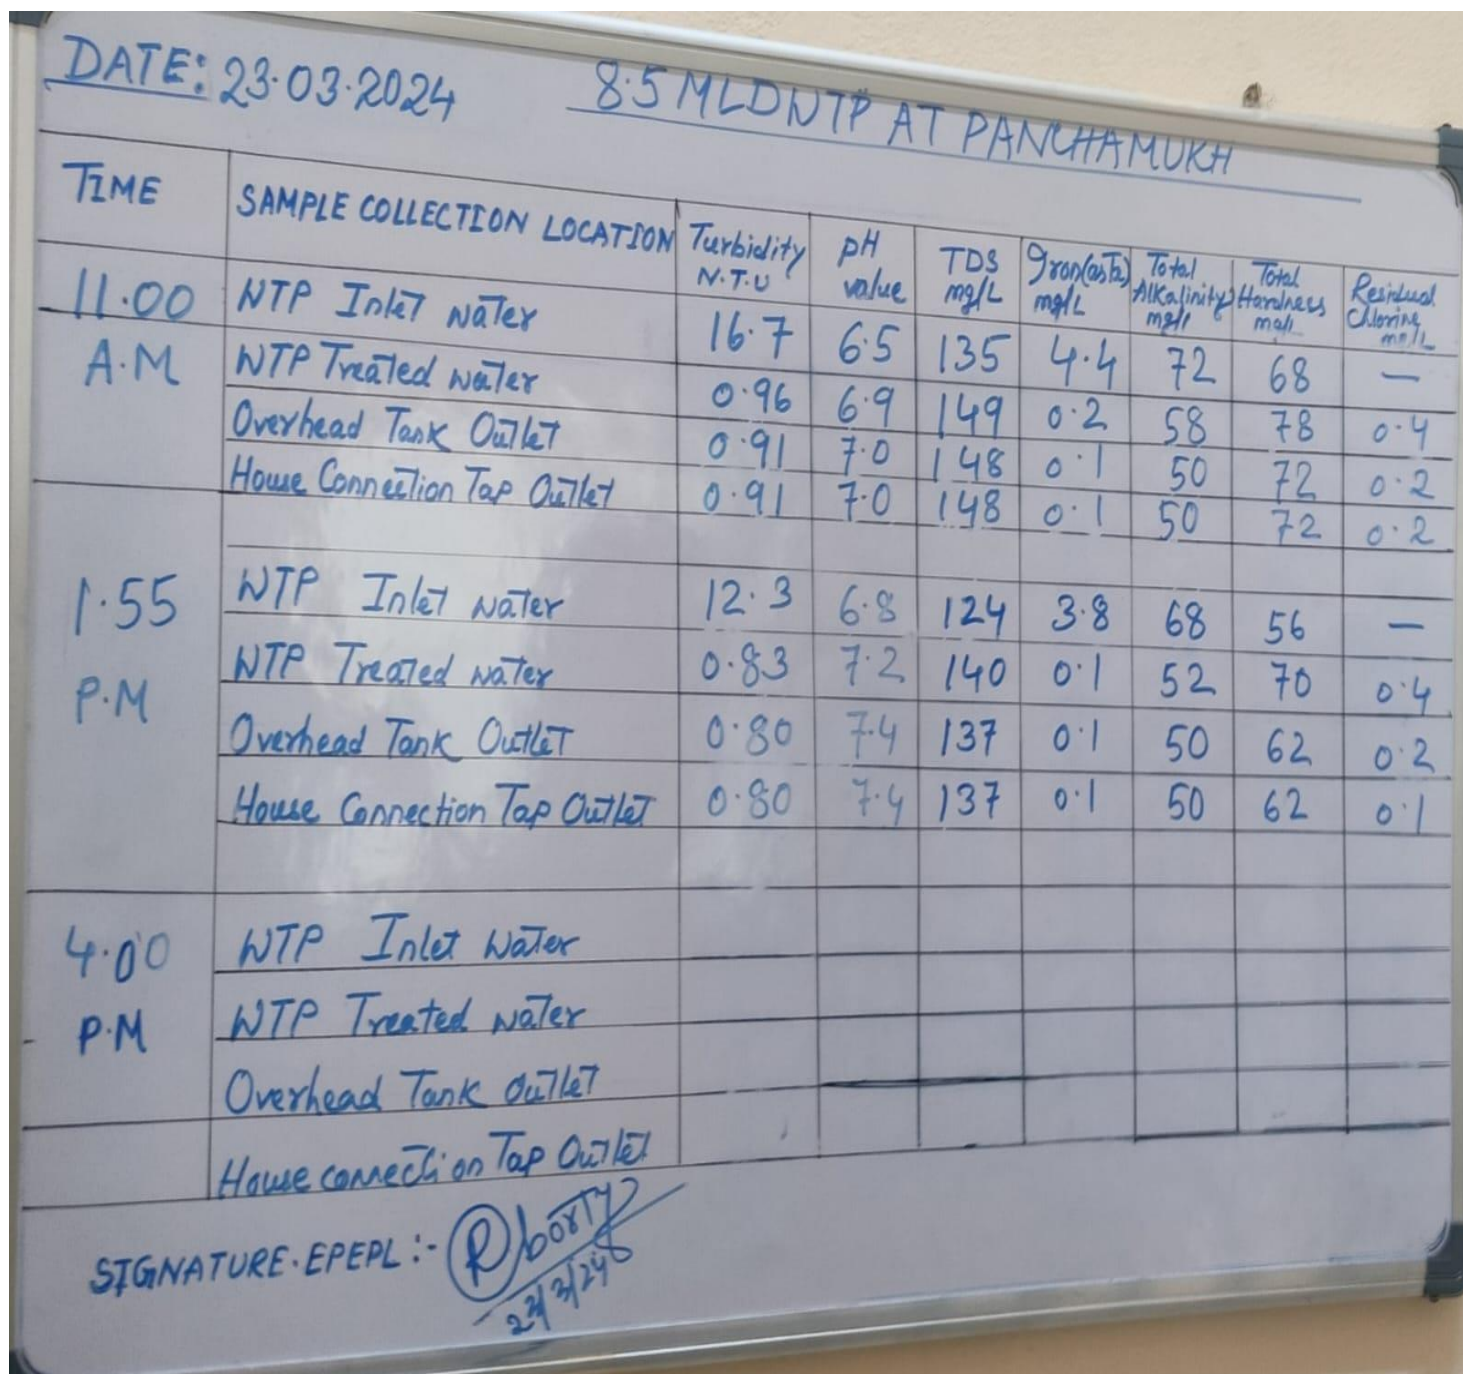 DATE: 23.03.2024 8.5 MLD WTP AT PANCHAMUKH
TIME SAMPLE COLLECTION LOCATION Turbidity N.T.U pH value TDS mg/L Iron(as Fe) mg/L Total Alkalinity mg/l Total Hardness mg/l Residual Chlorine mg/L
11.00 A.M WTP Inlet water 16.7 6.5 135 4.4 72 68 —
WTP Treated water 0.96 6.9 149 0.2 58 78 0.4
Overhead Tank Outlet 0.91 7.0 148 0.1 50 72 0.2
House Connection Tap Outlet 0.91 7.0 148 0.1 50 72 0.2
1.55 P.M WTP Inlet water 12.3 6.8 124 3.8 68 56 —
WTP Treated water 0.83 7.2 140 0.1 52 70 0.4
Overhead Tank Outlet 0.80 7.4 137 0.1 50 62 0.2
House Connection Tap Outlet 0.80 7.4 137 0.1 50 62 0.1
4.00 P.M WTP Inlet Water
WTP Treated water
Overhead Tank Outlet
House connection Tap Outlet
SIGNATURE.EPEPL :-
23/3/24